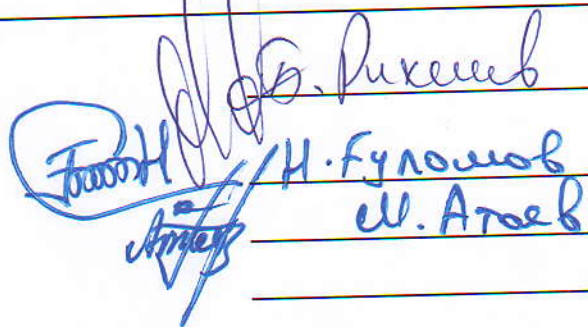 Б. Рихсиев
Н. Ғуломов
М. Атаев